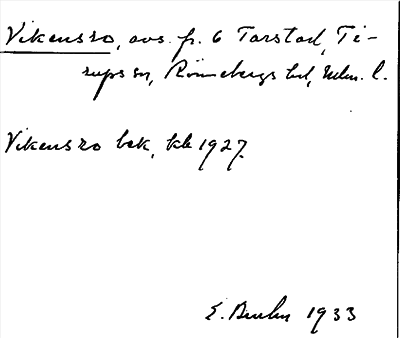 Vikensro, avs. fr. 6 Tarstad, Ti-
rups sn, Rönnebergs hd, Mlm. l.
Vikensro bek, kb 1927.
E. Bruhn 1933